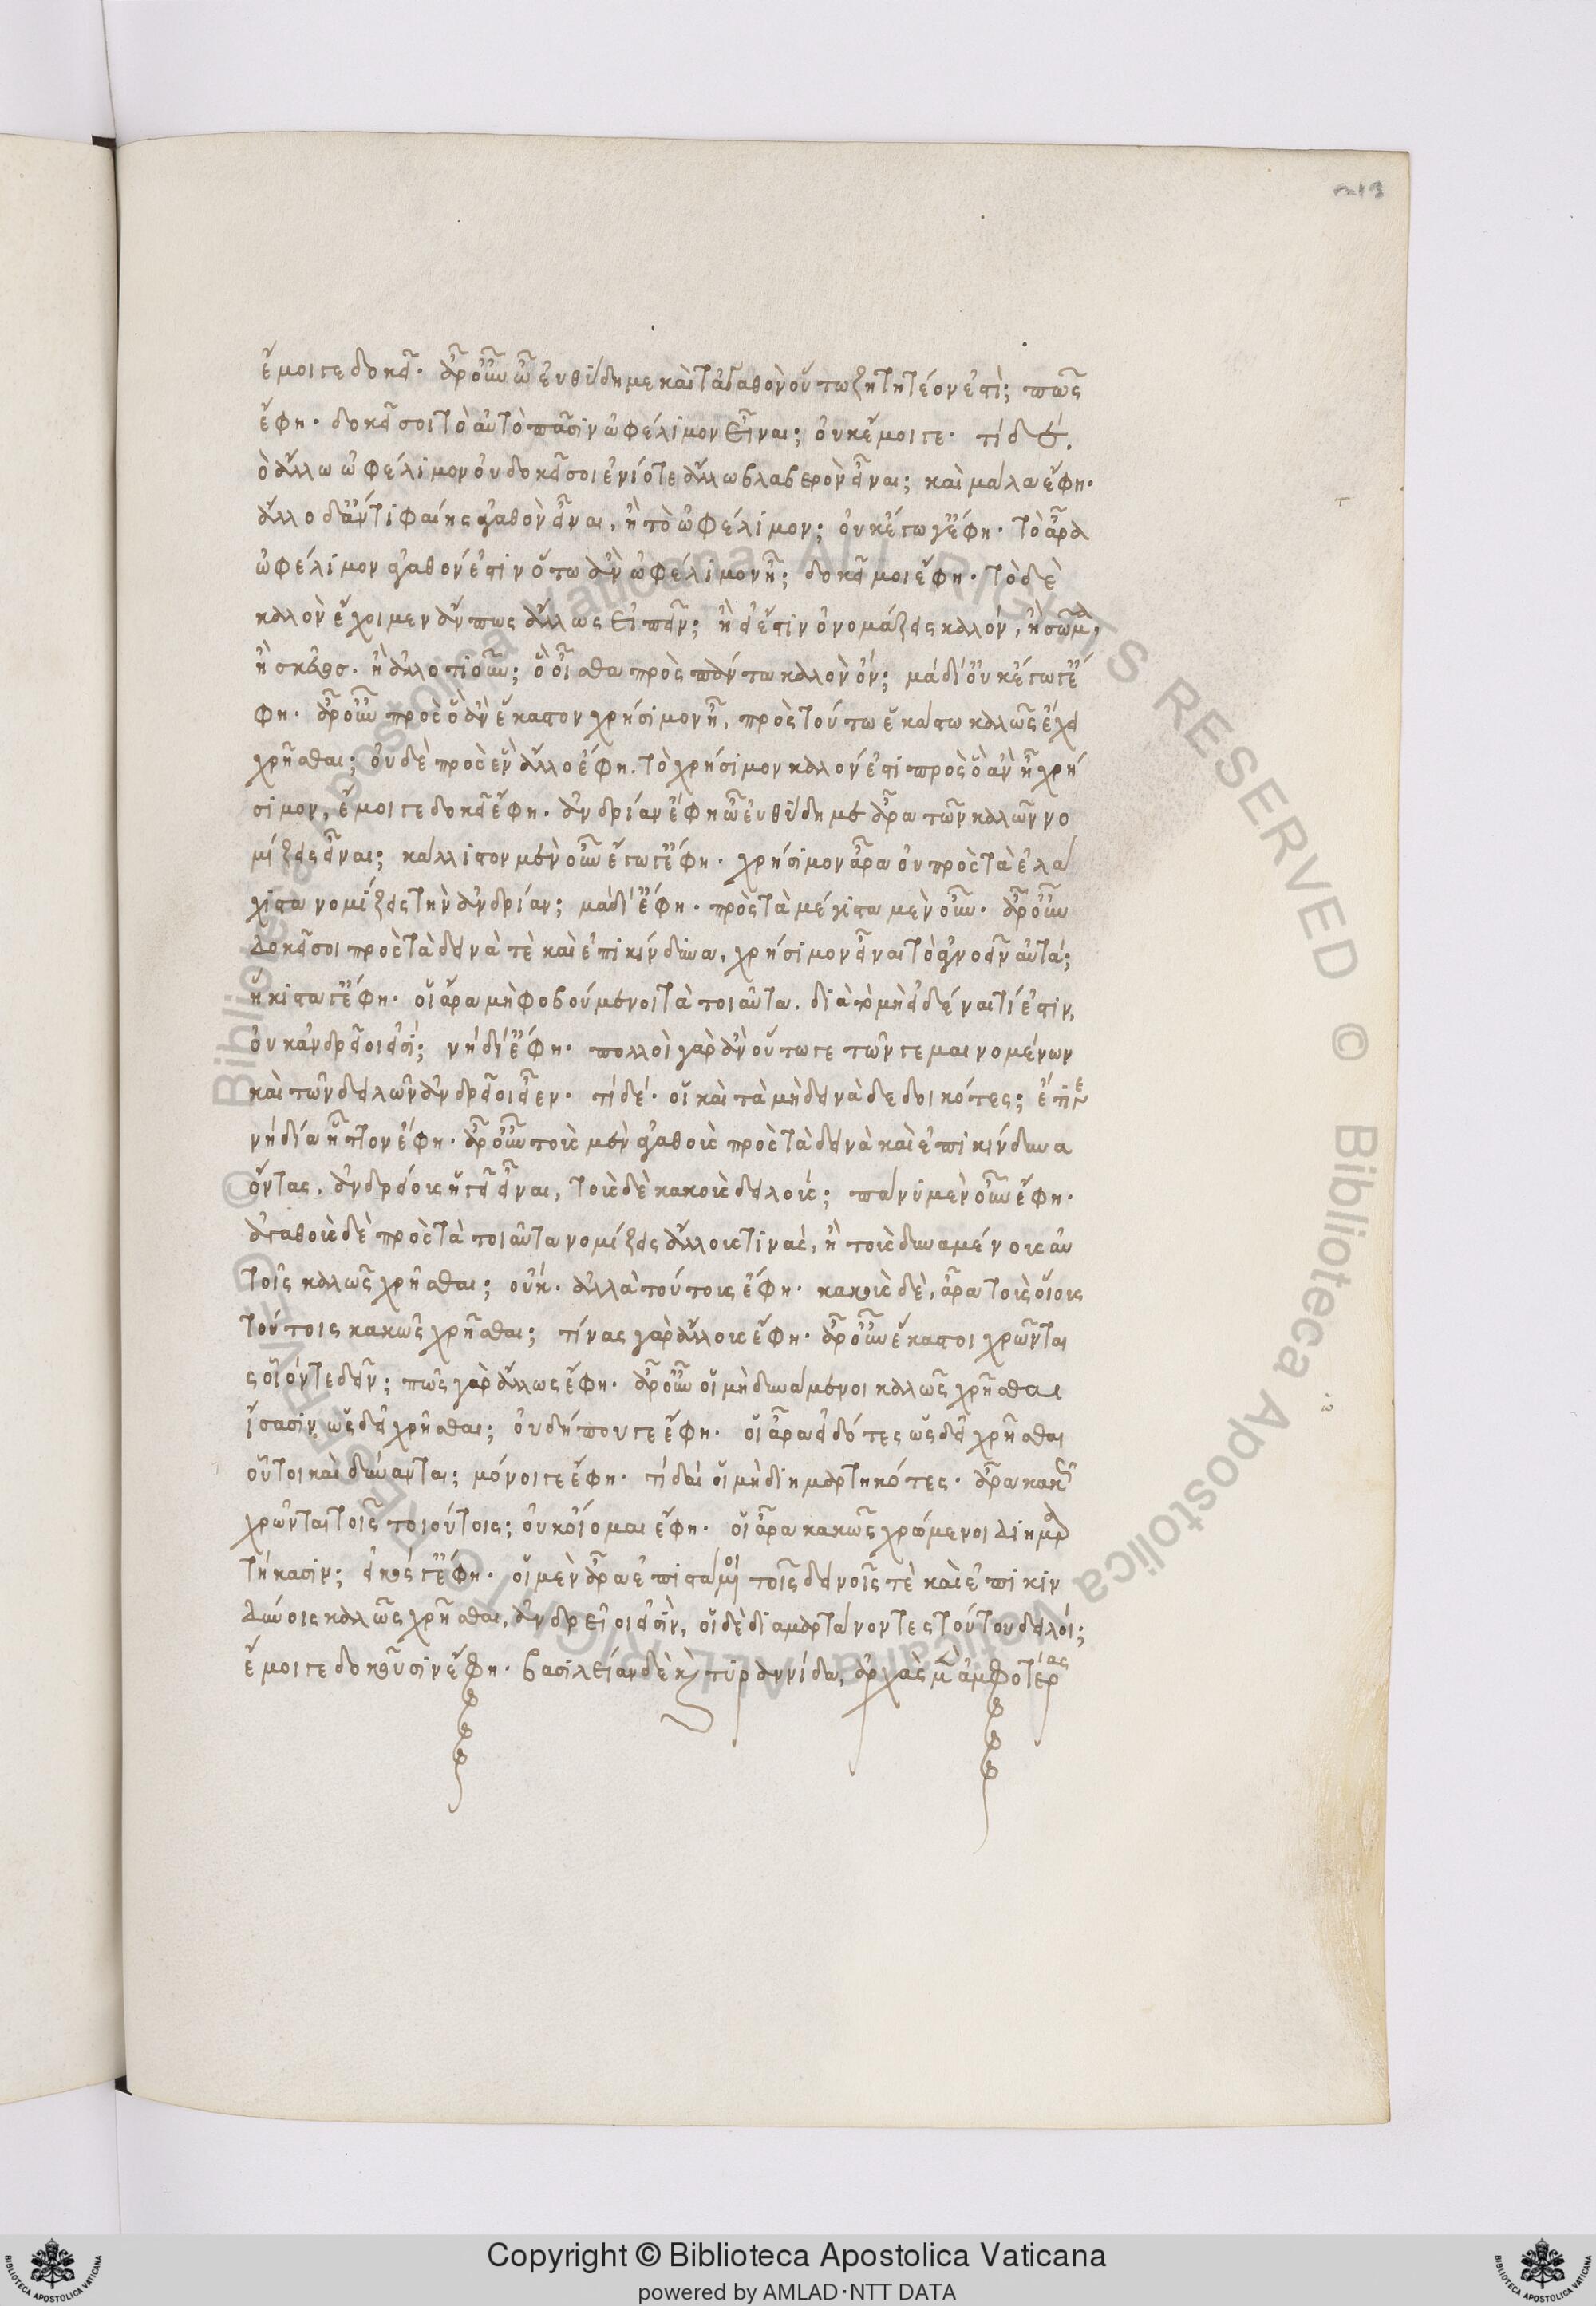 213
ἔμοιγε δοκεῖ. ἆρ' οὖν ὦ εὐθύδημε καὶ τἀγαθὸν οὕτω ζητητέον ἐστί; πῶς
ἔφη. δοκεῖ σοι τὸ αὐτὸ πᾶσιν ὠφέλιμον εἶναι; οὐκ ἔμοιγε. τί δέ.
ὁ ἄλλω ὠφέλιμον οὐ δοκεῖ σοι ἐνίοτε ἄλλω βλαβερὸν εἶναι; καὶ μάλα ἔφη.
ἄλλο δ' ἄν τι φαίης ἀγαθὸν εἶναι, ἢ τὸ ὠφέλιμον; οὐκ ἔγωγ' ἔφη. τὸ ἄρα
ὠφέλιμον ἀγαθόν ἐστιν ὅτω ἂν ὠφέλιμον ἦ; δοκεῖ μοι ἔφη. τὸ δὲ
καλὸν ἔχοιμεν ἄν πως ἄλλως εἰπεῖν; ἢ εἰ ἔστιν ὀνομάζεις καλόν, ἢ σῶμα,
ἢ σκεῦος. ἢ ἄλλο τι οὖν; ὃ οἶσθα πρὸς πάντα καλὸν ὄν; μὰ δί' οὐκ ἔγωγ' ἔ
φη. ἆρ' οὖν πρὸς ὃ ἂν ἕκαστον χρήσιμον ἦ, πρὸς τούτω ἑκάστω καλῶς ἔχει
χρῆσθαι; οὐδὲ πρὸς ἓν ἄλλο ἔφη. τὸ χρήσιμον καλόν ἐστι πρὸς ὃ ἂν ἦ χρή
σιμον, ἔμοιγε δοκεῖ ἔφη. ἀνδρίαν ἔφη ὦ εὐθύδημε ἆρα τῶν καλῶν νο
μίζεις εἶναι; κάλλιστον μὲν οὖν ἔγωγ' ἔφη. χρήσιμον ἄρα οὐ πρὸς τὰ ἐλά
χιστα νομίζεις τὴν ἀνδρίαν; μὰ δί' ἔφη. πρὸς τὰ μέγιστα μὲν οὖν. ἆρ' οὖν
δοκεῖ σοι πρὸς τὰ δεινά τε καὶ ἐπικίνδυνα, χρήσιμον εἶναι τὸ ἀγνοεῖν αὐτά;
ἥκιστα γ' ἔφη. οἱ ἄρα μὴ φοβούμενοι τὰ τοιαῦτα. διὰ τὸ μὴ εἰδέναι τί ἐστιν,
οὐκ ἀνδρεῖοι εἰσί; νὴ δί' ἔφη. πολλοὶ γὰρ ἂν οὕτω γε τῶν τε μαινομένων
καὶ τῶν δειλῶν ἀνδρεῖοι εἶεν. τί δέ. οἱ καὶ τὰ μὴ δεινὰ δεδοικότες; ἔτι γε
νὴ δία ἧττον ἔφη. ἆρ' οὖν τοὺς μὲν ἀγαθοὺς πρὸς τὰ δεινὰ καὶ ἐπικίνδυνα
ὄντας, ἀνδρείους ἡγεῖ εἶναι, τοὺς δὲ κακοὺς δειλούς; πάνυ μὲν οὖν ἔφη.
ἀγαθοὺς δὲ πρὸς τὰ τοιαῦτα νομίζεις ἄλλους τινάς, ἢ τοὺς δυναμένους αὐ
τοῖς καλῶς χρῆσθαι; οὔκ. ἀλλὰ τούτους ἔφη. κακοὺς δὲ, ἄρα τοὺς οἵους
τούτοις κακῶς χρῆσθαι; τίνας γὰρ ἄλλους ἔφη. ἆρ' οὖν ἕκαστοι χρῶνται
ς οἴονται δεῖν; πῶς γὰρ ἄλλως ἔφη. ἆρ' οὖν οἱ μὴ δυνάμενοι καλῶς χρῆσθαι
ἴσασιν ὡς δεῖ χρῆσθαι; οὐ δήπου γε ἔφη. οἱ ἄρα εἰδότες ὡς δεῖ χρῆσθαι
οὗτοι καὶ δύνανται; μόνοι γε ἔφη. τί δαί οἱ μὴ διημαρτηκότες. ἆρα κακῶς
χρῶνται τοῖς τοιούτοις; οὐκ οἴομαι ἔφη. οἱ ἄρα κακῶς χρώμενοι διημαρ
τήκασιν; εἰκός γ' ἔφη. οἱ μὲν ἄρα ἐπιστάμενοι τοῖς δεινοῖς τε καὶ ἐπικιν
δύνοις καλῶς χρῆσθαι, ἀνδρεῖοι εἰσίν, οἱ δὲ διαμαρτάνοντες τούτου δειλοί;
ἔμοιγε δοκοῦσιν ἔφη. βασιλείαν δὲ καὶ τυραννίδα, ἀρχὰς μὲν ἀμφοτέρας
Copyright © Biblioteca Apostolica Vaticana
powered by AMLAD·NTT DATA